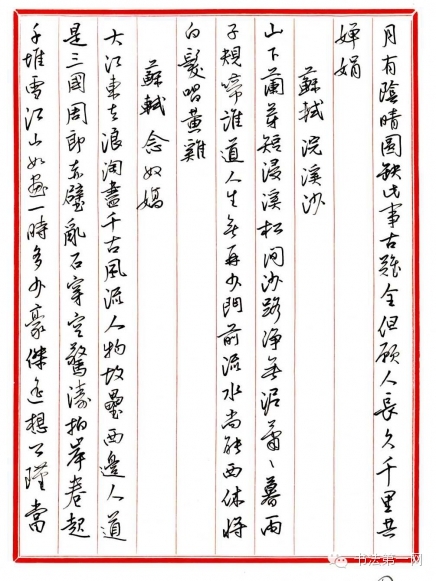 月有陰晴圆缺此事古難全但願人長久千里共
嬋娟
蘇軾 浣溪沙
山下蘭芽短浸溪松间沙路净無泥萧丶暮雨
子規啼誰道人生無再少門前流水尚能西休将
白髮唱黄雞
蘇軾 念奴嬌
大江東去浪淘盡千古風流人物故壘西邊人道
是三國周郎赤壁亂石穿空驚濤拍岸卷起
千堆雪江山如畫一時多少豪傑遥想公瑾當
书法第一网